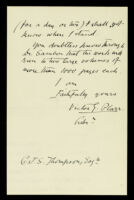 for a day or two I shall not
know when I stand.
You doubtless know through
Dr. Cameron that the work will
run to two large volumes of
more than 1000 pages each.
I am
Faithfully yours
Victor G. Plarr
Libn
C.J.S. Thompson, Esqre